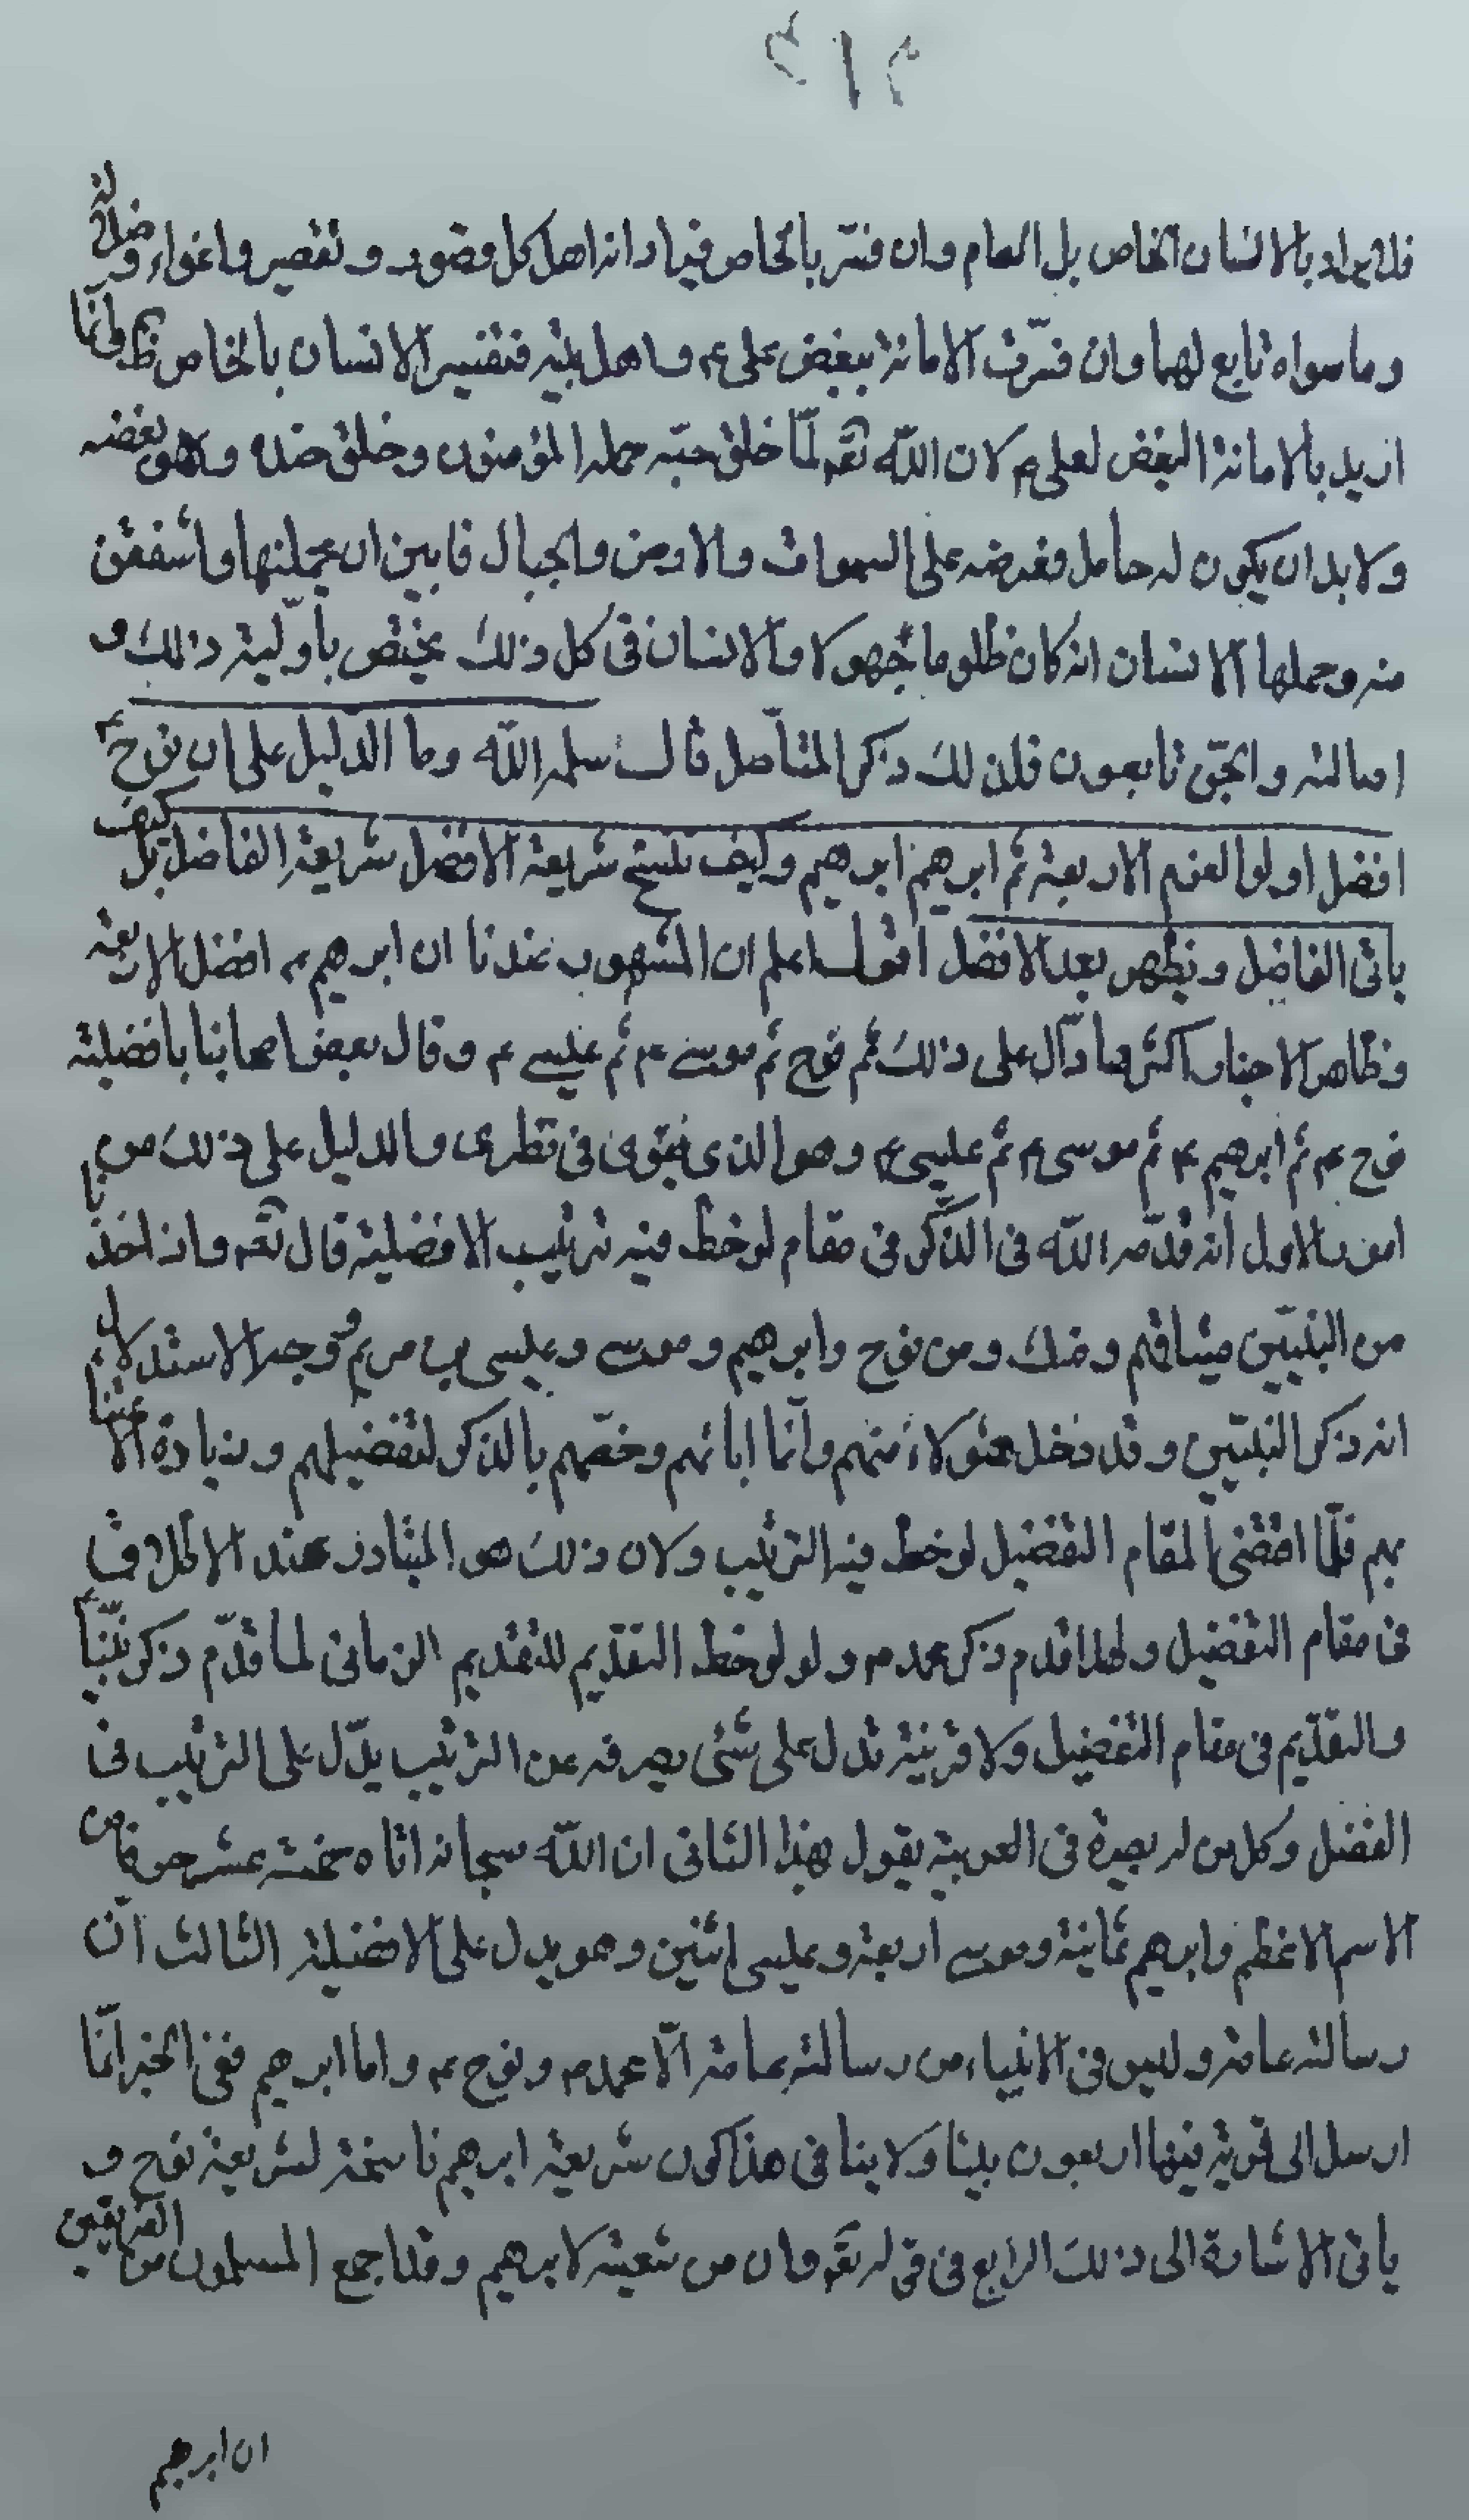 فلا يراد بالانسان الخاص بل العام وان فسّر بالخاص فيراد انه اهل كل قصور و تقصير واغواء وضلالة
وما سواه تابع لهما وان فسّرت الامانة ببغض علي ع و اهل بيته فتفسير الانسان بالخاص ظ وانّما
اريد بالامانة البغض لعلي ع لان الله تعه لمّا خلق حبّه حمله المؤمنون وخلق ضده وهو بغضه
ولا بد ان يكون له حامل فعرضه على السموات والارض والجبال فابين ان يحملنها واشفقن
منه وحملها الانسان انه كان ظلوما جهولا والانسان في كل ذلك يختص بأوّلية ذلك و
اصالته والجنّ تابعون فلذلك ذكر المتأصل قال سلمه الله وما الدليل على ان نوح ع
افضل اولوا العزم الاربعة ثم ابرهيم ابرهيم وكيف نسخ شريعة الافضل شريعة الفاضل بل كيف
ياتي الفاضل ويظهر بعد الافضل اقول اعلم ان المشهور عندنا ان ابرهيم ع افضل الاربعة
وظاهر الاخبار اكثرها دالّ على ذلك ثم نوح ثم موسى ع ثم عيسى ع وقال بعض اصحابنا بافضلية
نوح ع ثم ابرهيم ع ثم موسى ع ثم عيسى ع وهو الذي يقوى في نظري والدليل على ذلك من
امور الاول انه قدّمه الله في الذكر في مقام لوحظ فيه ترتيب الافضلية قال تعه واذ اخذنا
من النبيّين ميثاقهم ومنك ومن نوح وابرهيم وموسى وعيسى بن مريم ووجه الاستدلال
انه ذكر النبيّين وقد دخل هؤلاء منهم وانّما ابانهم وخصّهم بالذكر لتفضيلهم وزيادة الاعتناء
بهم فلمّا اقتضى المقام التفضيل لوحظ فيه الترتيب ولان ذلك هو المتبادر عند الاطلاق
في مقام التفضيل ولهذا قدم ذكر محمد ص ولو لوحظ التقديم للتقديم الزماني لما قدّم ذكر نبيّنا ص
والتقديم في مقام التفضيل ولا قرينة تدل على شئ يصرفه عن الترتيب يدّل على الترتيب في
الفضل وكل من له بصيرة في العربية يقول بهذا الثاني ان الله سبحانه اتاه خمسة عشر حرفا من
الاسم الاعظم وابرهيم ثمانية وموسى اربعة وعيسى اثنين وهو يدل على الافضلية الثالث انّ
رسالته عامة وليس في الانبياء من رسالته عامة الّا محمد ص ونوح ع واما ابرهيم ففي الخبر انّما
ارسل الى قرية فيها اربعون بيتا ولا ينافي هذا كون شريعة ابرهيم ناسخة لشريعة نوح و
ياتي الاشارة الى ذلك الرابع في قوله تعه وان من شيعته لابرهيم وقد اجمع المسلمون من الفريقين
ان ابرهيم